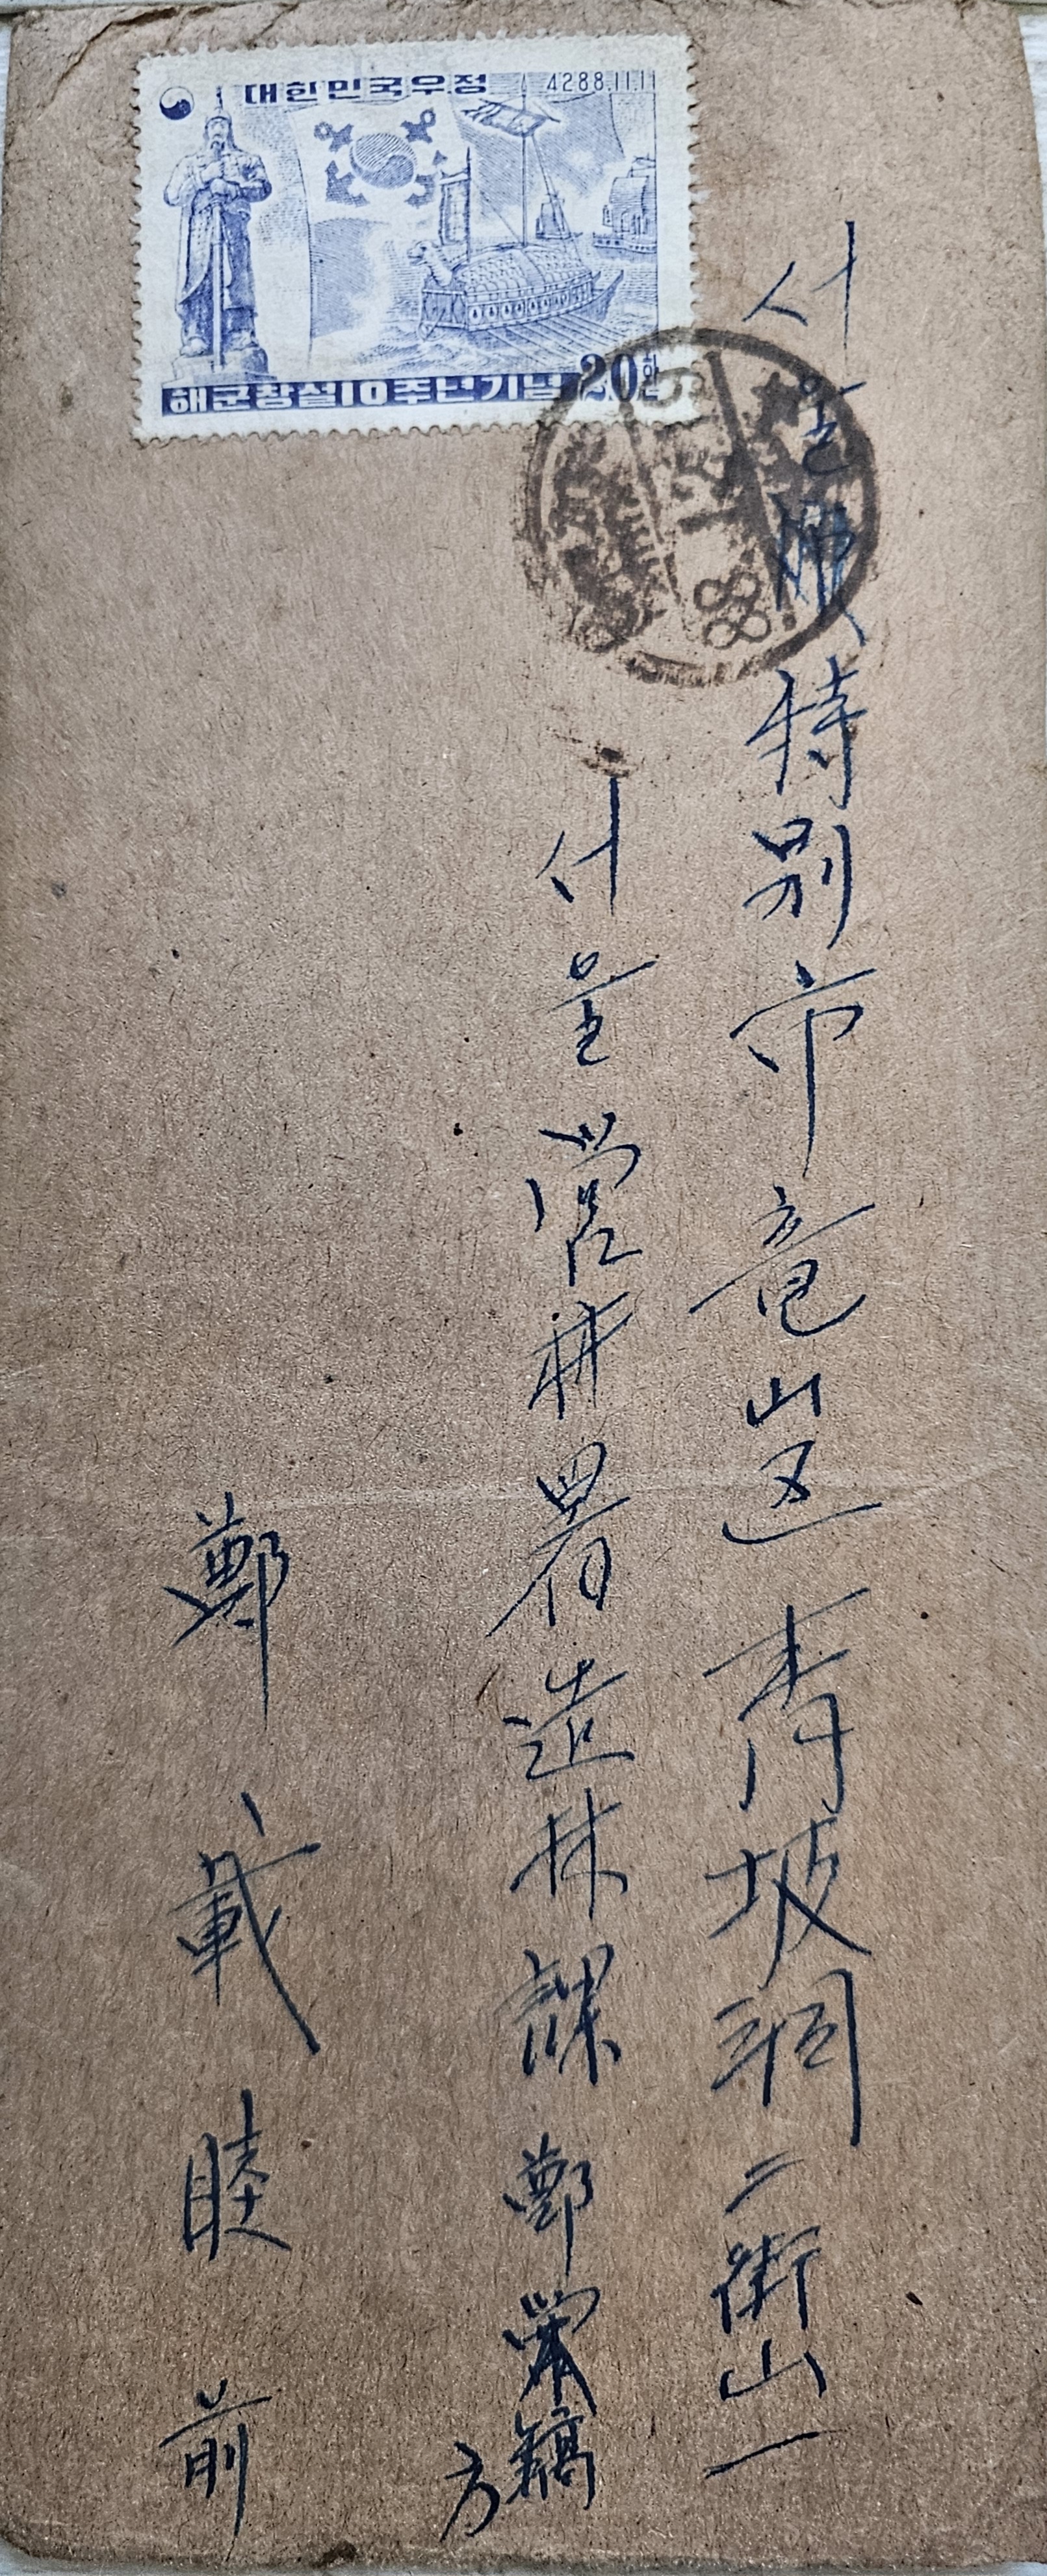 대한민국우정 4288.11.11
해군창설10주년기념 20환
88
서울 特別市 竜山区 靑坡洞 二街 山一
서울 営林署 造林課 鄭榮鎬 方
鄭載睦 前